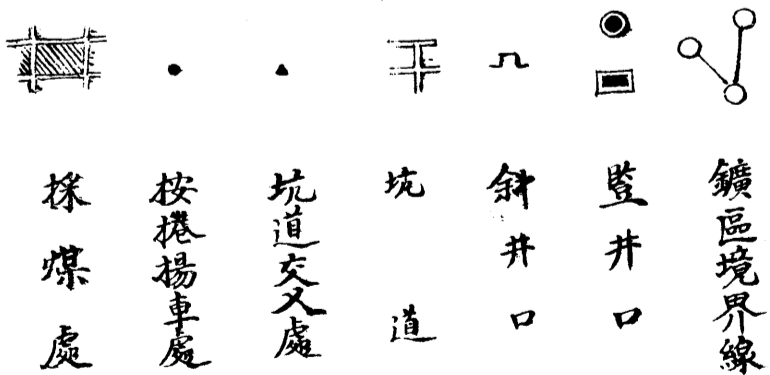 鑛區境界線
豎井口
斜井口
坑道
坑道交叉處
按捲揚車處
採煤處